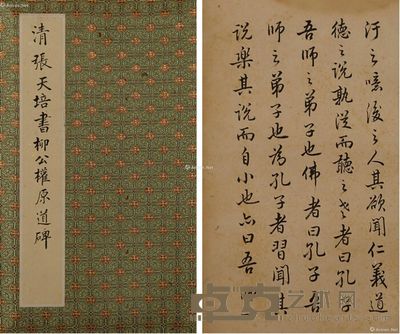 清張天培書柳公權原道碑
汙之噫後之人其欲聞仁義道
德之說孰從而聽之老者曰孔子
吾師之弟子也佛者曰孔子吾
師之弟子也為孔子者習聞其
說樂其說而自小也亦曰吾